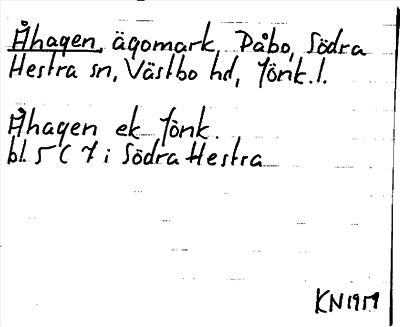 Åhagen, ägomark, Påbo, Södra
Hestra sn, Västbo hd, Jönk. l.
Åhagen ek Jönk.
bl 5 C 7 i Södra Hestra
KN 1959